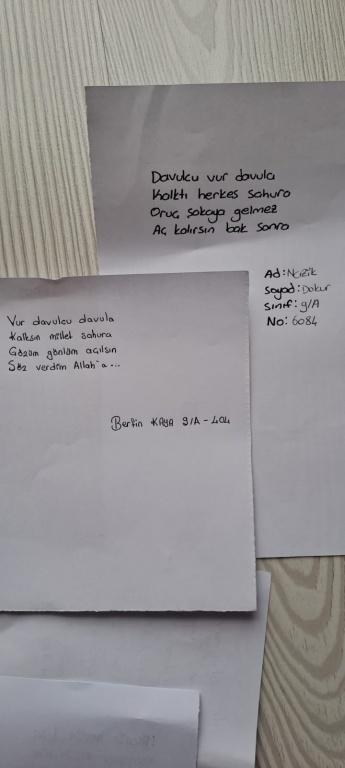 Davulcu vur davula
Kalktı herkes sahura
Oruç şakaya gelmez
Aç kalırsın bak sonra
Ad: Nazik
Soyad: Dokur
Sınıf: 9/A
No: 6084
Vur davulcu davula
Kalksın millet sahura
Gözüm gönlüm açılsın
Söz verdim Allah'a...
Berfin KAYA 9/A - 404